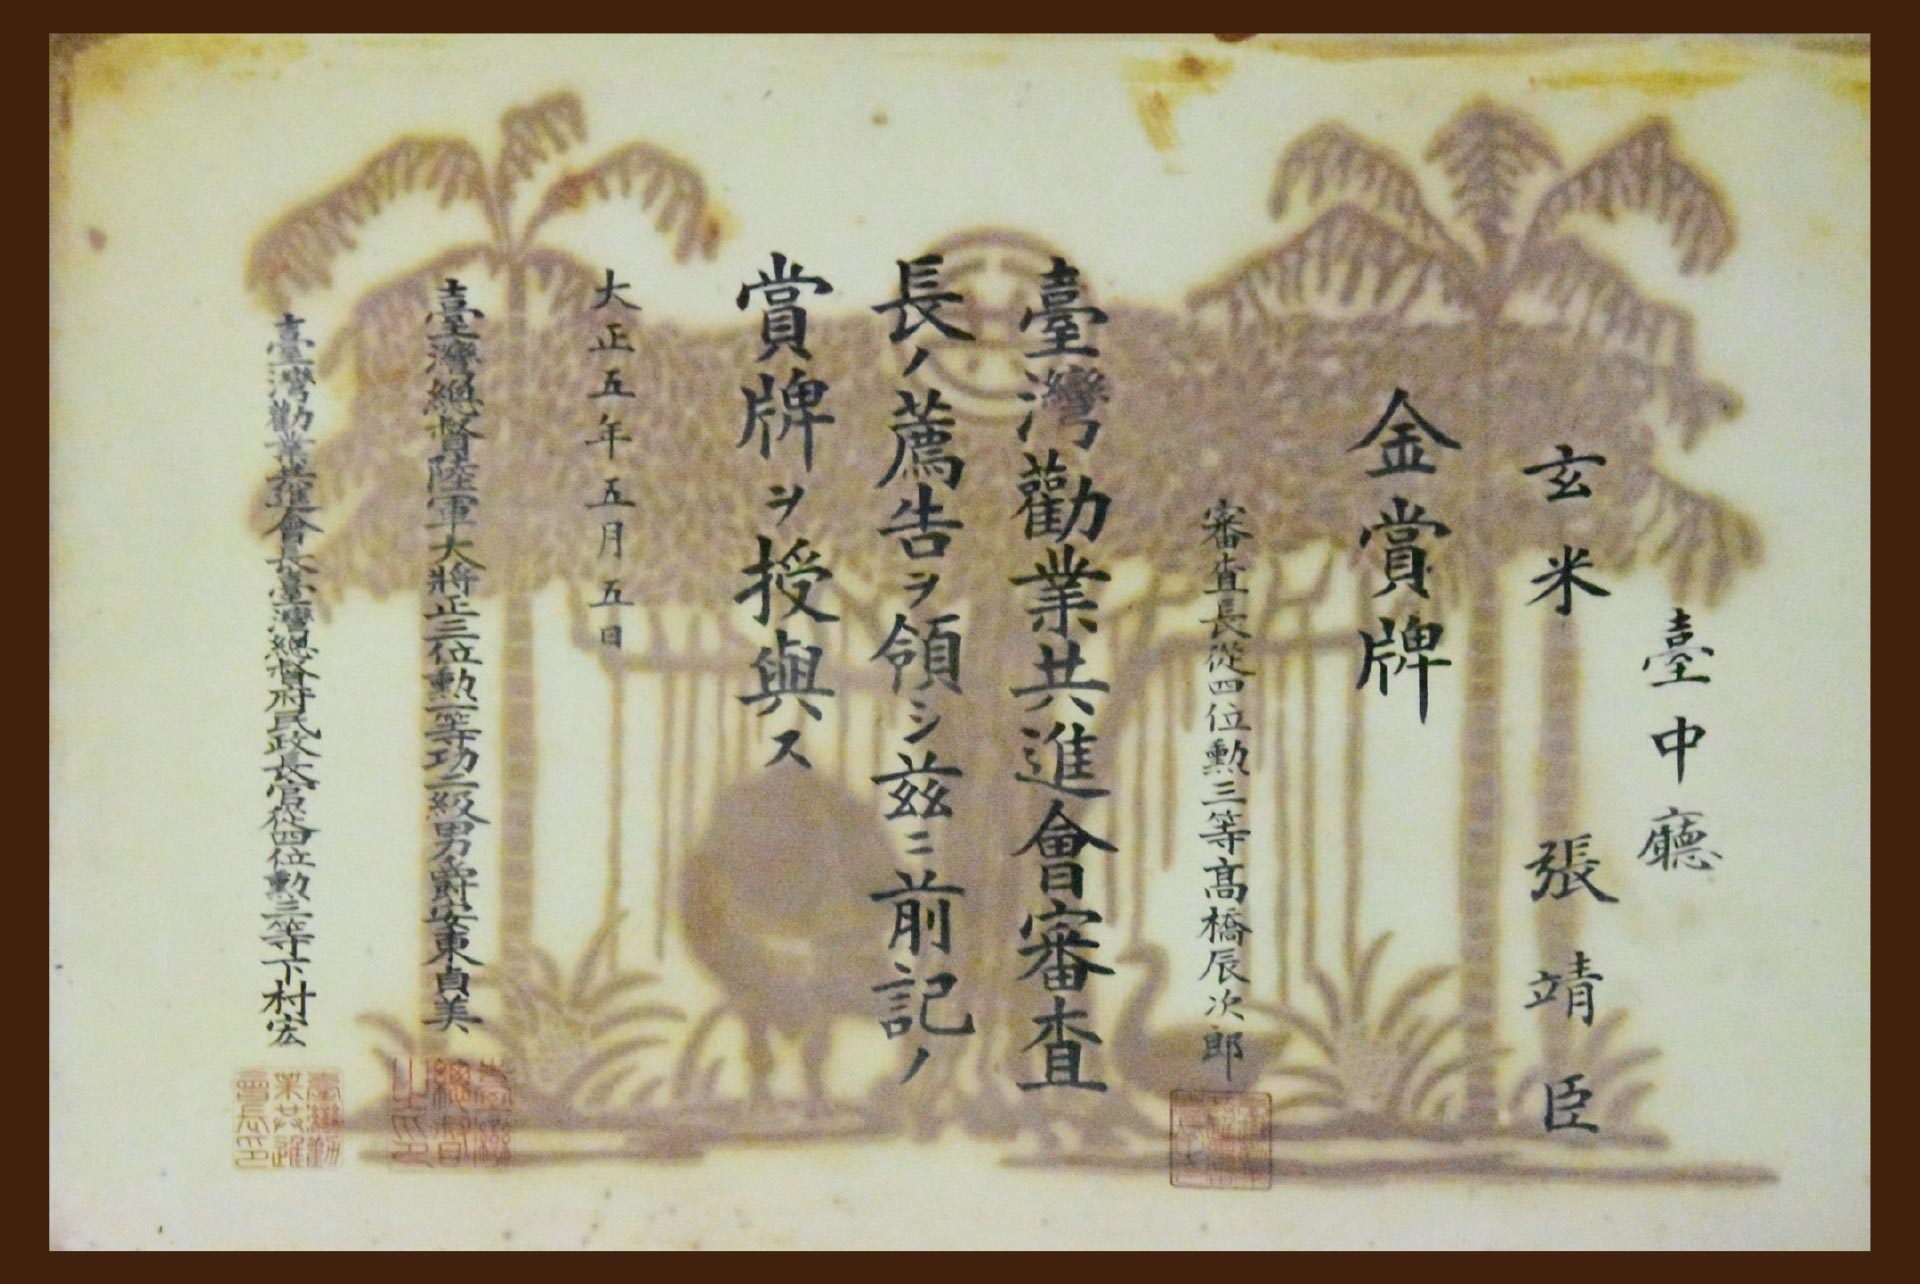 臺中廳
玄米 張靖臣
金賞牌
審査長從四位勲三等高橋辰次郎
臺灣勸業共進會審査
長ノ薦告ヲ領シ茲ニ前記ノ
賞牌ヲ授與ス
大正五年五月五日
臺灣總督陸軍大將正三位勲一等功二級男爵安東貞美
臺灣勸業共進會長臺灣總督府民政長官從四位勲三等下村宏
臺灣總督之印
臺灣勸業共進會長印